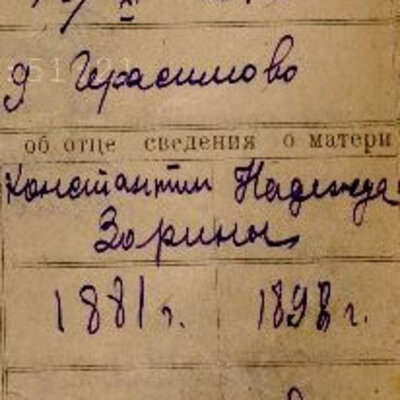 д Герасимово
об отце сведения о матери
Константин Надежда
Зорины
1881 г. 1898 г.